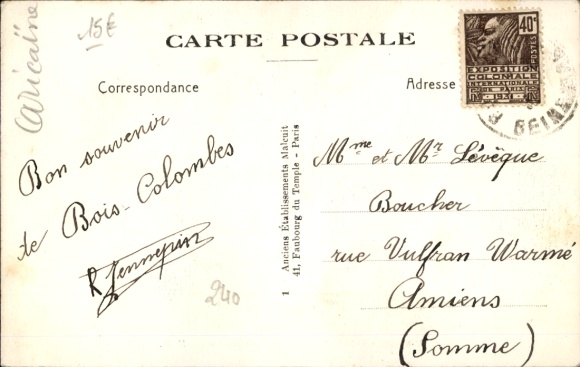 caricaïne
15€
CARTE POSTALE
Correspondance
Adresse
40c
POSTES
EXPOSITION
COLONIALE
INTERNATIONALE
DE PARIS
1931
SEINE
Bon souvenir
de Bois-Colombes
R Jennepin
240
1 Anciens Établissements Malcuit
41, Faubourg du Temple - Paris
Mme et Mr Lévêque
Boucher
rue Vulfran Warmé
Amiens
(Somme)